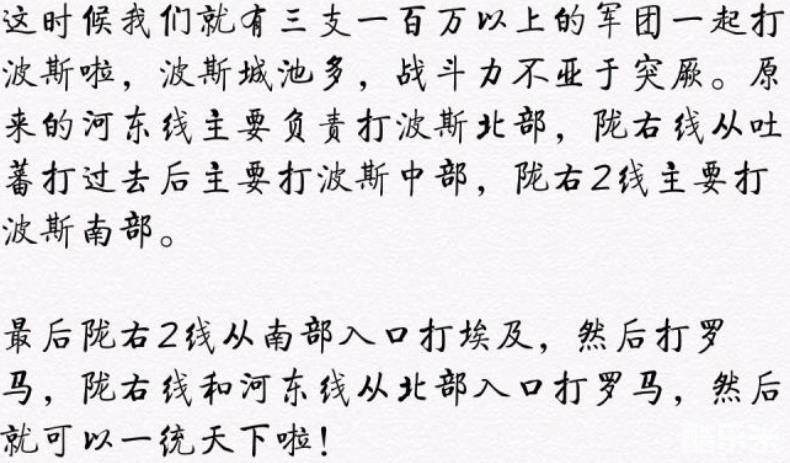 这时候我们就有三支一百万以上的军团一起打
波斯啦，波斯城池多，战斗力不亚于突厥。原
来的河东线主要负责打波斯北部，陇右线从吐
蕃打过去后主要打波斯中部，陇右2线主要打
波斯南部。
最后陇右2线从南部入口打埃及，然后打罗
马，陇右线和河东线从北部入口打罗马，然后
就可以一统天下啦！